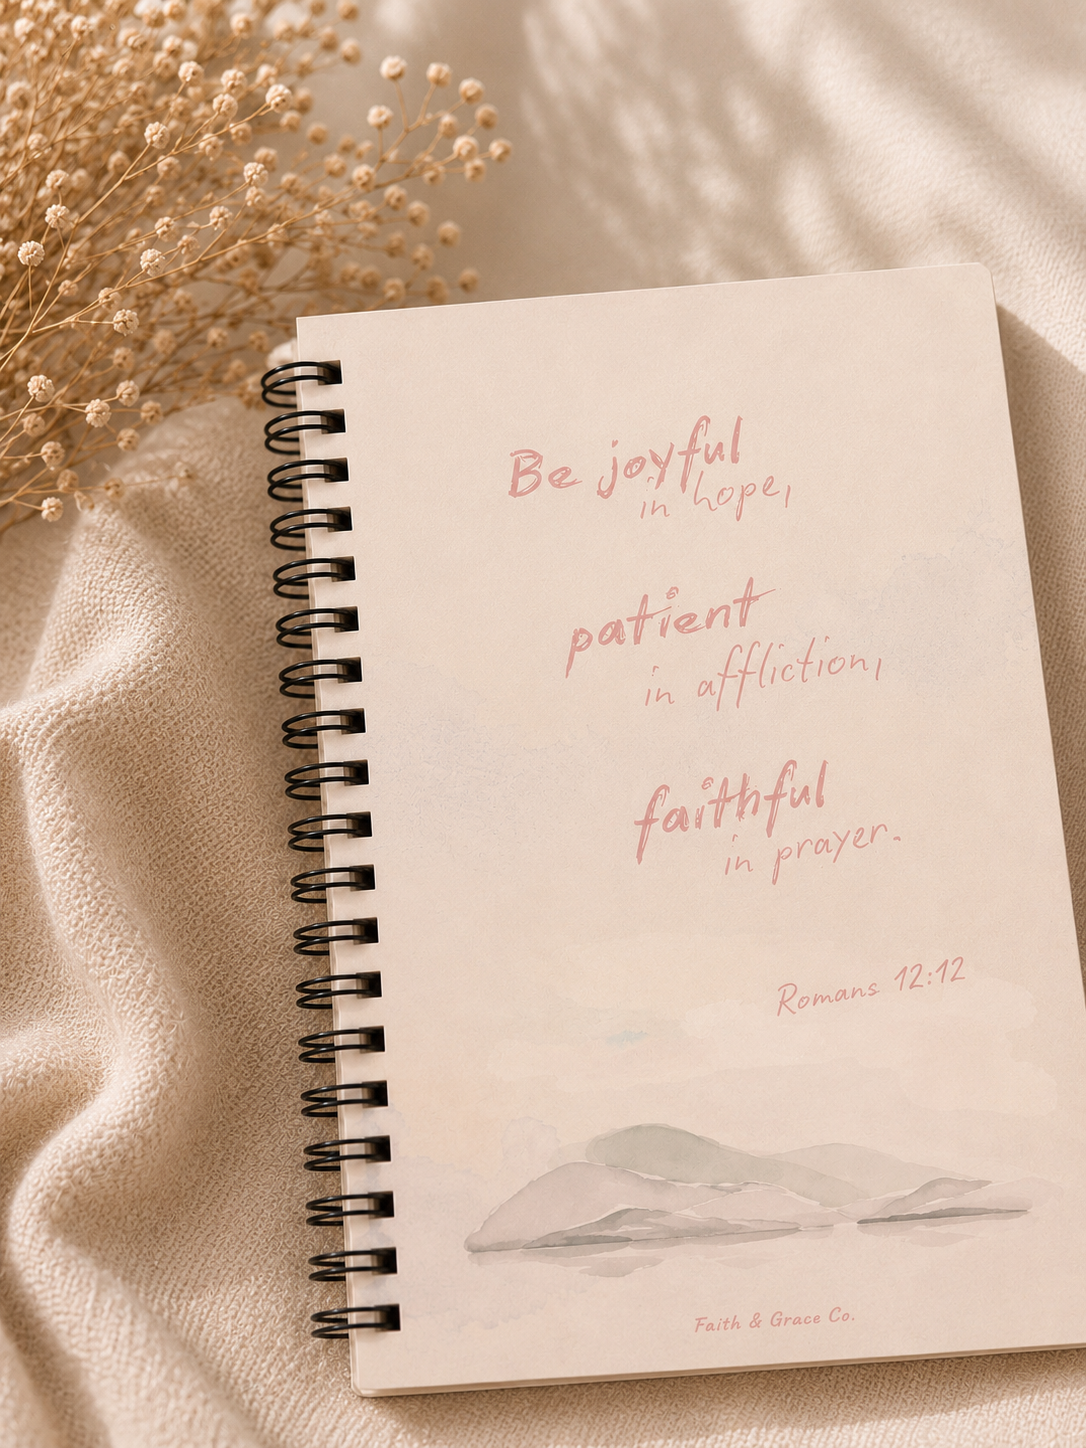 Be joyful
in hope,
patient
in affliction,
faithful
in prayer.
Romans 12:12
Faith & Grace Co.